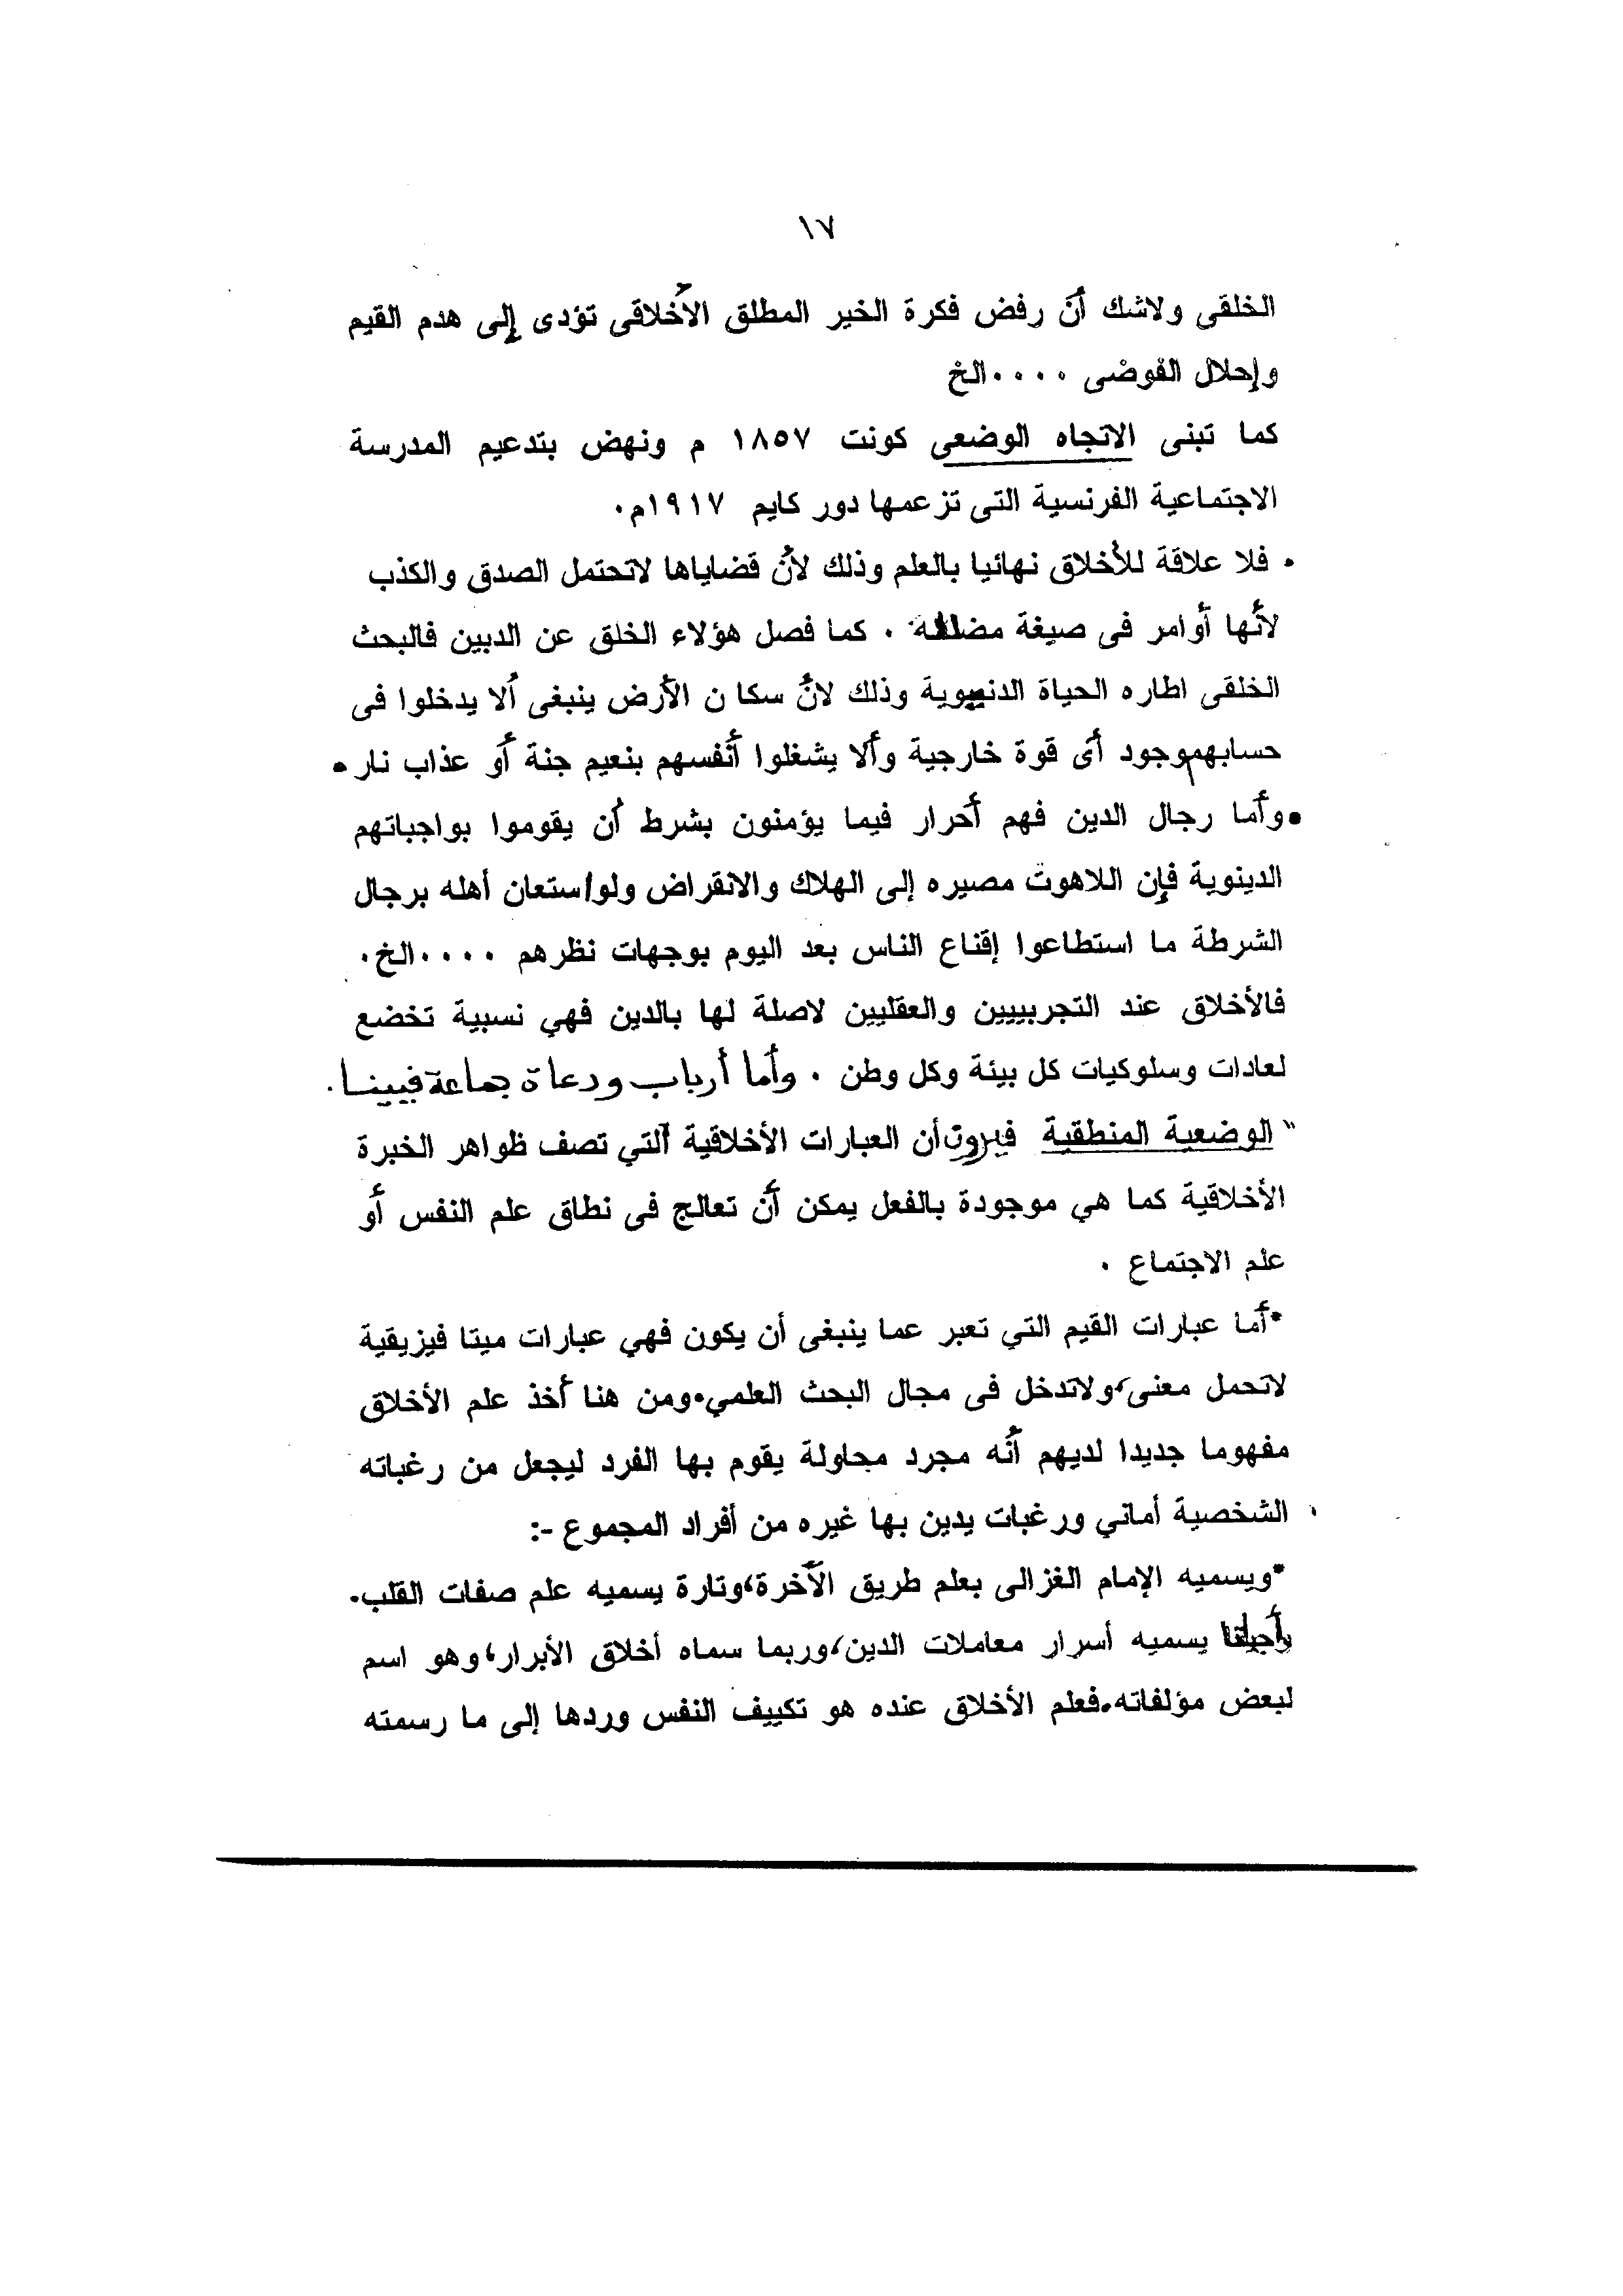 ١٧
الخلقى ولاشك أن رفض فكرة الخير المطلق الأخلاقى تؤدى إلى هدم القيم
وإحلال الفوضى ٠٠٠٠الخ
كما تبنى الاتجاه الوضعى كونت ١٨٥٧ م ونهض بتدعيم المدرسة
الاجتماعية الفرنسية التى تزعمها دور كايم ١٩١٧م٠
٠ فلا علاقة للأخلاق نهائيا بالعلم وذلك لأن قضاياها لاتحتمل الصدق والكذب
لأنها أوامر فى صيغة مضللة ٠ كما فصل هؤلاء الخلق عن الدبين فالبحث
الخلقى اطاره الحياة الدنيوية وذلك لأن سكا ن الأرض ينبغى ألا يدخلوا فى
حسابهم وجود أى قوة خارجية وألا يشغلوا أنفسهم بنعيم جنة أو عذاب نار ٠
٠وأما رجال الدين فهم أحرار فيما يؤمنون بشرط أن يقوموا بواجباتهم
الدينوية فإن اللاهوت مصيره إلى الهلاك والانقراض ولو استعان أهله برجال
الشرطة ما استطاعوا إقناع الناس بعد اليوم بوجهات نظرهم ٠٠٠٠الخ٠
فالأخلاق عند التجربييين والعقليين لاصلة لها بالدين فهي نسبية تخضع
لعادات وسلوكيات كل بيئة وكل وطن ٠ وأما أرباب ودعاة جماعة فيينا٠
"الوضعية المنطقية فيرون أن العبارات الأخلاقية التي تصف ظواهر الخبرة
الأخلاقية كما هي موجودة بالفعل يمكن أن تعالج فى نطاق علم النفس أو
علم الاجتماع ٠
*أما عبارات القيم التي تعبر عما ينبغى أن يكون فهي عبارات ميتا فيزيقية
لاتحمل معنى،ولاتدخل فى مجال البحث العلمي٠ومن هنا أخذ علم الأخلاق
مفهوما جديدا لديهم أنه مجرد محاولة يقوم بها الفرد ليجعل من رغباته
الشخصية أماني ورغبات يدين بها غيره من أفراد المجموع -:
*ويسميه الإمام الغزالى بعلم طريق الآخرة،وتارة يسميه علم صفات القلب٠
وأحيانا يسميه أسرار معاملات الدين،وربما سماه أخلاق الأبرار،وهو اسم
لبعض مؤلفاته٠فعلم الأخلاق عنده هو تكييف النفس وردها إلى ما رسمته